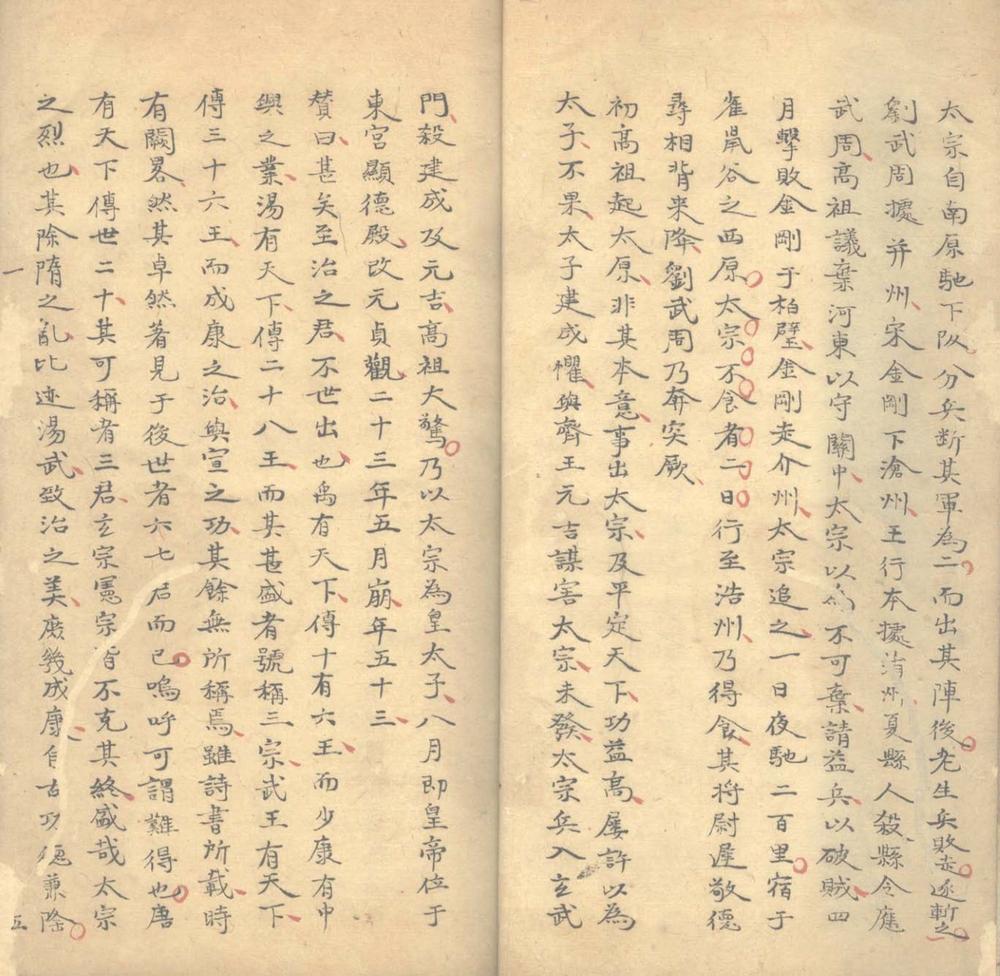 太宗自南原馳下阪分兵断其軍為二而出其陣後老生兵敗走遂斬之
劉武周據并州宋金剛下滄州王行本據蒲州夏縣人殺縣令應
武周高祖議棄河東以守關中太宗以為不可棄請益兵以破賊四
月擊敗金剛于柏壁金剛走介州太宗追之一日夜馳二百里宿于
雀鼠谷之西原太宗不食者二日行至浩州乃得食其将尉遲敬德
尋相背来降劉武周乃奔突厥
初高祖起太原非其本意事出太宗及平定天下功益高屢許以為
太子不果太子建成懼與齊王元吉謀害太宗未發太宗兵入玄武
門殺建成及元吉高祖大驚乃以太宗為皇太子八月即皇帝位于
東宮顯德殿改元貞觀二十三年五月崩年五十三
賛曰甚矣至治之君不世出也禹有天下傳十有六王而少康有中
興之業湯有天下傳二十八王而其甚盛者號稱三宗武王有天下
傳三十六王而成康之治與宣之功其餘無所稱焉雖詩書所載時
有闕畧然其卓然著見于後世者六七君而已嗚呼可謂難得也唐
有天下傳世二十其可稱者三君玄宗憲宗皆不克其終盛哉太宗
之烈也其除隋之亂比迹湯武致治之美庶幾成康自古功德兼隆
一
五